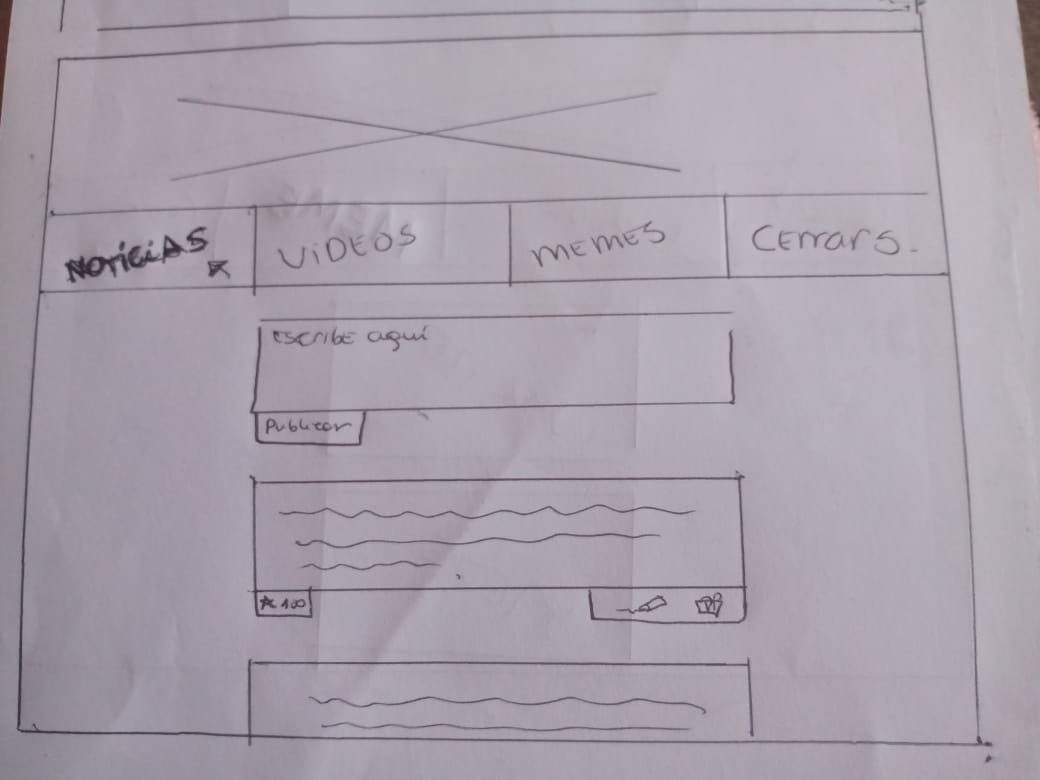 NOTICIAS
ViDEOS
MEMES
Cerrar S.
Escribe aquí
Publicar
100